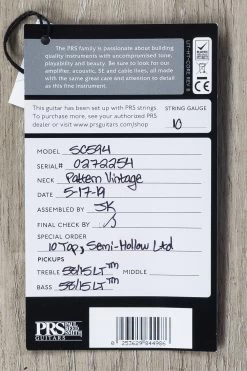 The PRS family is passionate about building
quality instruments with uncompromised tone,
playability and beauty. Be sure to look for our
amplifier, acoustic, SE and cable lines, all made
with the same great care and attention to detail
as this fine instrument.
This guitar has been set up with PRS strings.
To purchase more, see your authorized PRS
dealer or visit www.prsguitars.com/shop
STRING GAUGE
10
MODEL SC594
SERIAL# 0272254
NECK Pattern Vintage
DATE 5-17-19
ASSEMBLED BY SK
FINAL CHECK BY
SPECIAL ORDER
10 Top, Semi-Hollow Ltd
PICKUPS
TREBLE 58/15 LT TM MIDDLE
BASS 58/15 LT TM
PRS PAUL REED SMITH
GUITARS
0 253629 844986